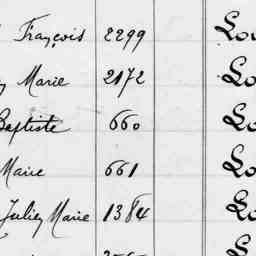 François 2299 Lo
Marie 2172 Lo
Baptiste 660 Lo
Marie 661 Lo
Julien Marie 1384 Lo